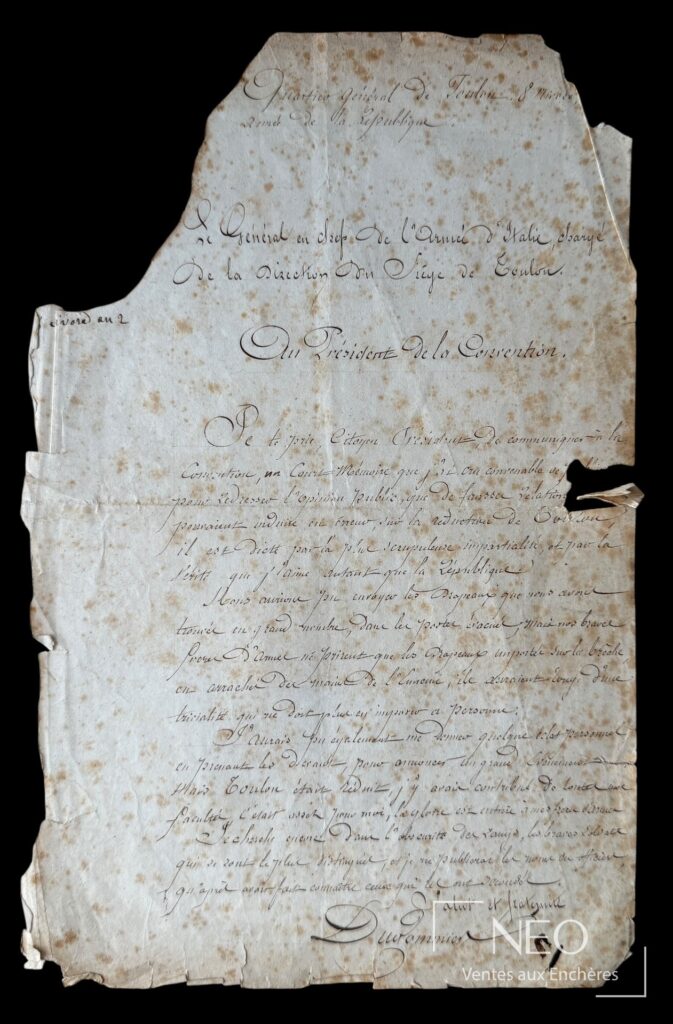 Quartier général de Toulon. 8
armée de la République.
Le Général en chef de l'Armée d'Italie, chargé
de la Direction du Siège de Toulon.
nivôse an 2
Au Président de la Convention.
Je te prie, Citoyen Président, de communiquer à la
Convention, un Court Mémoire que j'ai cru convenable de
pour redresser l'opinion Publique, que de fausses relations
pourraient induire en erreur sur la réduction de Toulon,
il est dicté par la plus scrupuleuse impartialité, et par la
Vérité que j'aime autant que la République.
Nous aurions pu envoyer les Drapeaux que nous avons
trouvés en grand nombre, dans les postes évacués, mais nos braves
frères d'armes ne prisent que les Drapeaux emportés sur la brèche
ou arrachés des mains de l'Ennemi, ils d'une
trivialité qui ne doit plus en imposer à personne.
J'aurais pu également me donner quelque éclat personnel
en prenant les devants pour annoncer un grand
Mais Toulon était réduit, j'y avais contribué de toutes mes
facultés, c'était assez pour moi, la gloire est entière à mes frères d'armes
Je cherche encore dans l'obscurité des Camps, les braves soldats
qui se sont le plus distingués, et je ne publierai les noms des officiers
qu'après avoir fait connaître ceux qui les ont secondés.
Salut et fraternité
Dugommier
NEO
Ventes aux Enchères